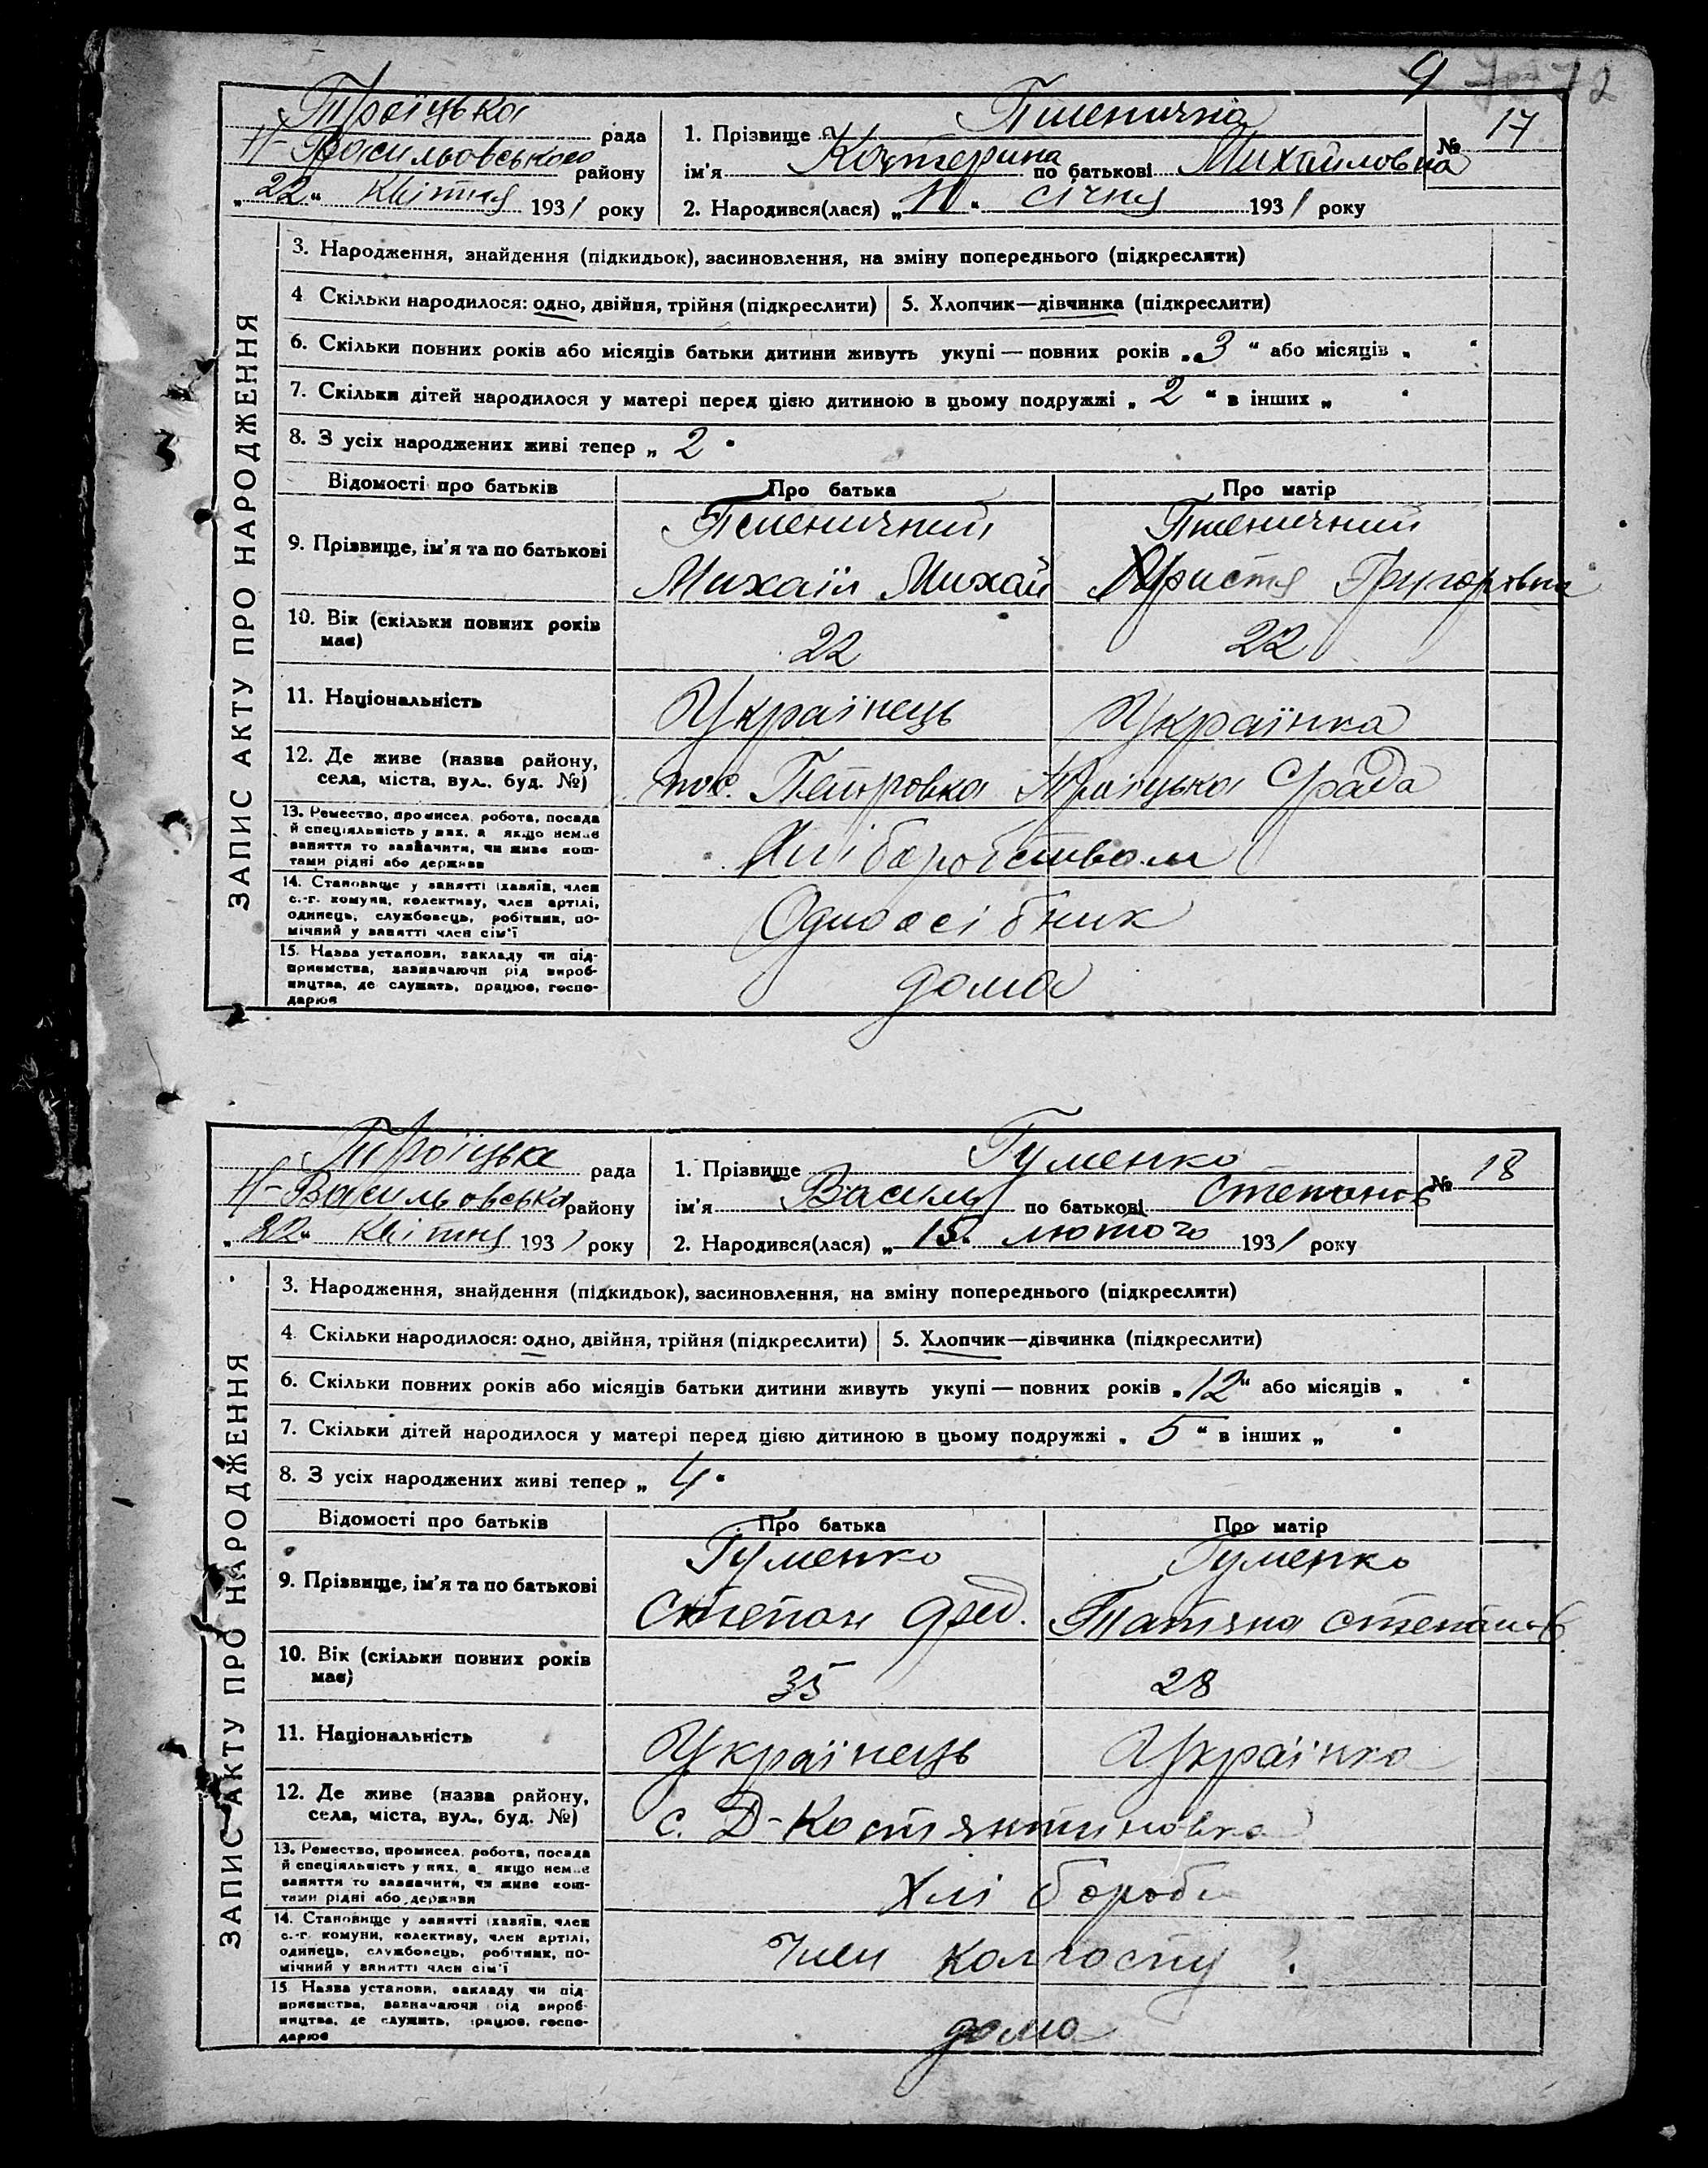 9 12
Троїцька рада
Н-Васильовського району
„22“ квітня 1931 року
1. Прізвище Пшенична
ім'я Катерина по батькові Михайловна
№ 17
2. Народився(лася) „11“ січня 1931 року
ЗАПИС АКТУ ПРО НАРОДЖЕННЯ
3. Народження, знайдення (підкидьок), засиновлення, на зміну попереднього (підкреслити)
4. Скільки народилося: одно, двійня, трійня (підкреслити) 5. Хлопчик—дівчинка (підкреслити)
6. Скільки повних років або місяців батьки дитини живуть укупі — повних років „3“ або місяців „ “
7. Скільки дітей народилося у матері перед цією дитиною в цьому подружжі „2“ в інших „ “
8. З усіх народжених живі тепер „2“
Відомості про батьків Про батька Про матір
9. Прізвище, ім'я та по батькові
Пшеничний Пшеничний
Михаїл Михай Христя Григоровна
10. Вік (скільки повних років має)
22 22
11. Національність Українець Українка
12. Де живе (назва району, села, міста, вул., буд. №)
пос. Петровка Троїцька С/рада
13. Ремество, промисел, робота, посада й спеціяльність у них, а якщо немає заняття то зазначити, чи живе коштами рідні або держави
Хліборобством
14. Становище у занятті (хазяїн, член с.-г. комуни, колективу, член артілі, одинець, службовець, робітник, помічний у занятті член сім'ї
Одноосібник
15. Назва установи, закладу чи підприємства, зазначаючи рід виробництва, де служать, працює, господарює
дома
Троїцька рада
Н-Васильовська району
„22“ квітня 1931 року
1. Прізвище Гуменко
ім'я Василь по батькові Степанов
№ 18
2. Народився(лася) „15“ лютого 1931 року
ЗАПИС АКТУ ПРО НАРОДЖЕННЯ
3. Народження, знайдення (підкидьок), засиновлення, на зміну попереднього (підкреслити)
4. Скільки народилося: одно, двійня, трійня (підкреслити) 5. Хлопчик—дівчинка (підкреслити)
6. Скільки повних років або місяців батьки дитини живуть укупі — повних років „12“ або місяців „ “
7. Скільки дітей народилося у матері перед цією дитиною в цьому подружжі „5“ в інших „ “
8. З усіх народжених живі тепер „4“
Відомості про батьків Про батька Про матір
9. Прізвище, ім'я та по батькові
Гуменко Гуменко
Степан Фед. Татяна Степанов.
10. Вік (скільки повних років має)
35 28
11. Національність Українець Українка
12. Де живе (назва району, села, міста, вул., буд. №)
с. Д-Костянтиновка
13. Ремество, промисел, робота, посада й спеціяльність у них, а якщо немає заняття то зазначити, чи живе коштами рідні або держави
Хлібороби
14. Становище у занятті (хазяїн, член с.-г. комуни, колективу, член артілі, одинець, службовець, робітник, помічний у занятті член сім'ї
Член колгоспу
15. Назва установи, закладу чи підприємства, зазначаючи рід виробництва, де служить, працює, господарює
дома